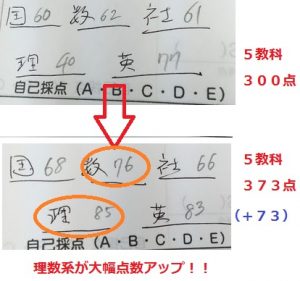 国 60 数 62 社 61
理 40 英 77
自己採点(A・B・C・D・E)
5教科
300点
国 68 数 76 社 66
理 85 英 83
自己採点(A・B・C・D・E)
5教科
373点
(+73)
理数系が大幅点数アップ!!